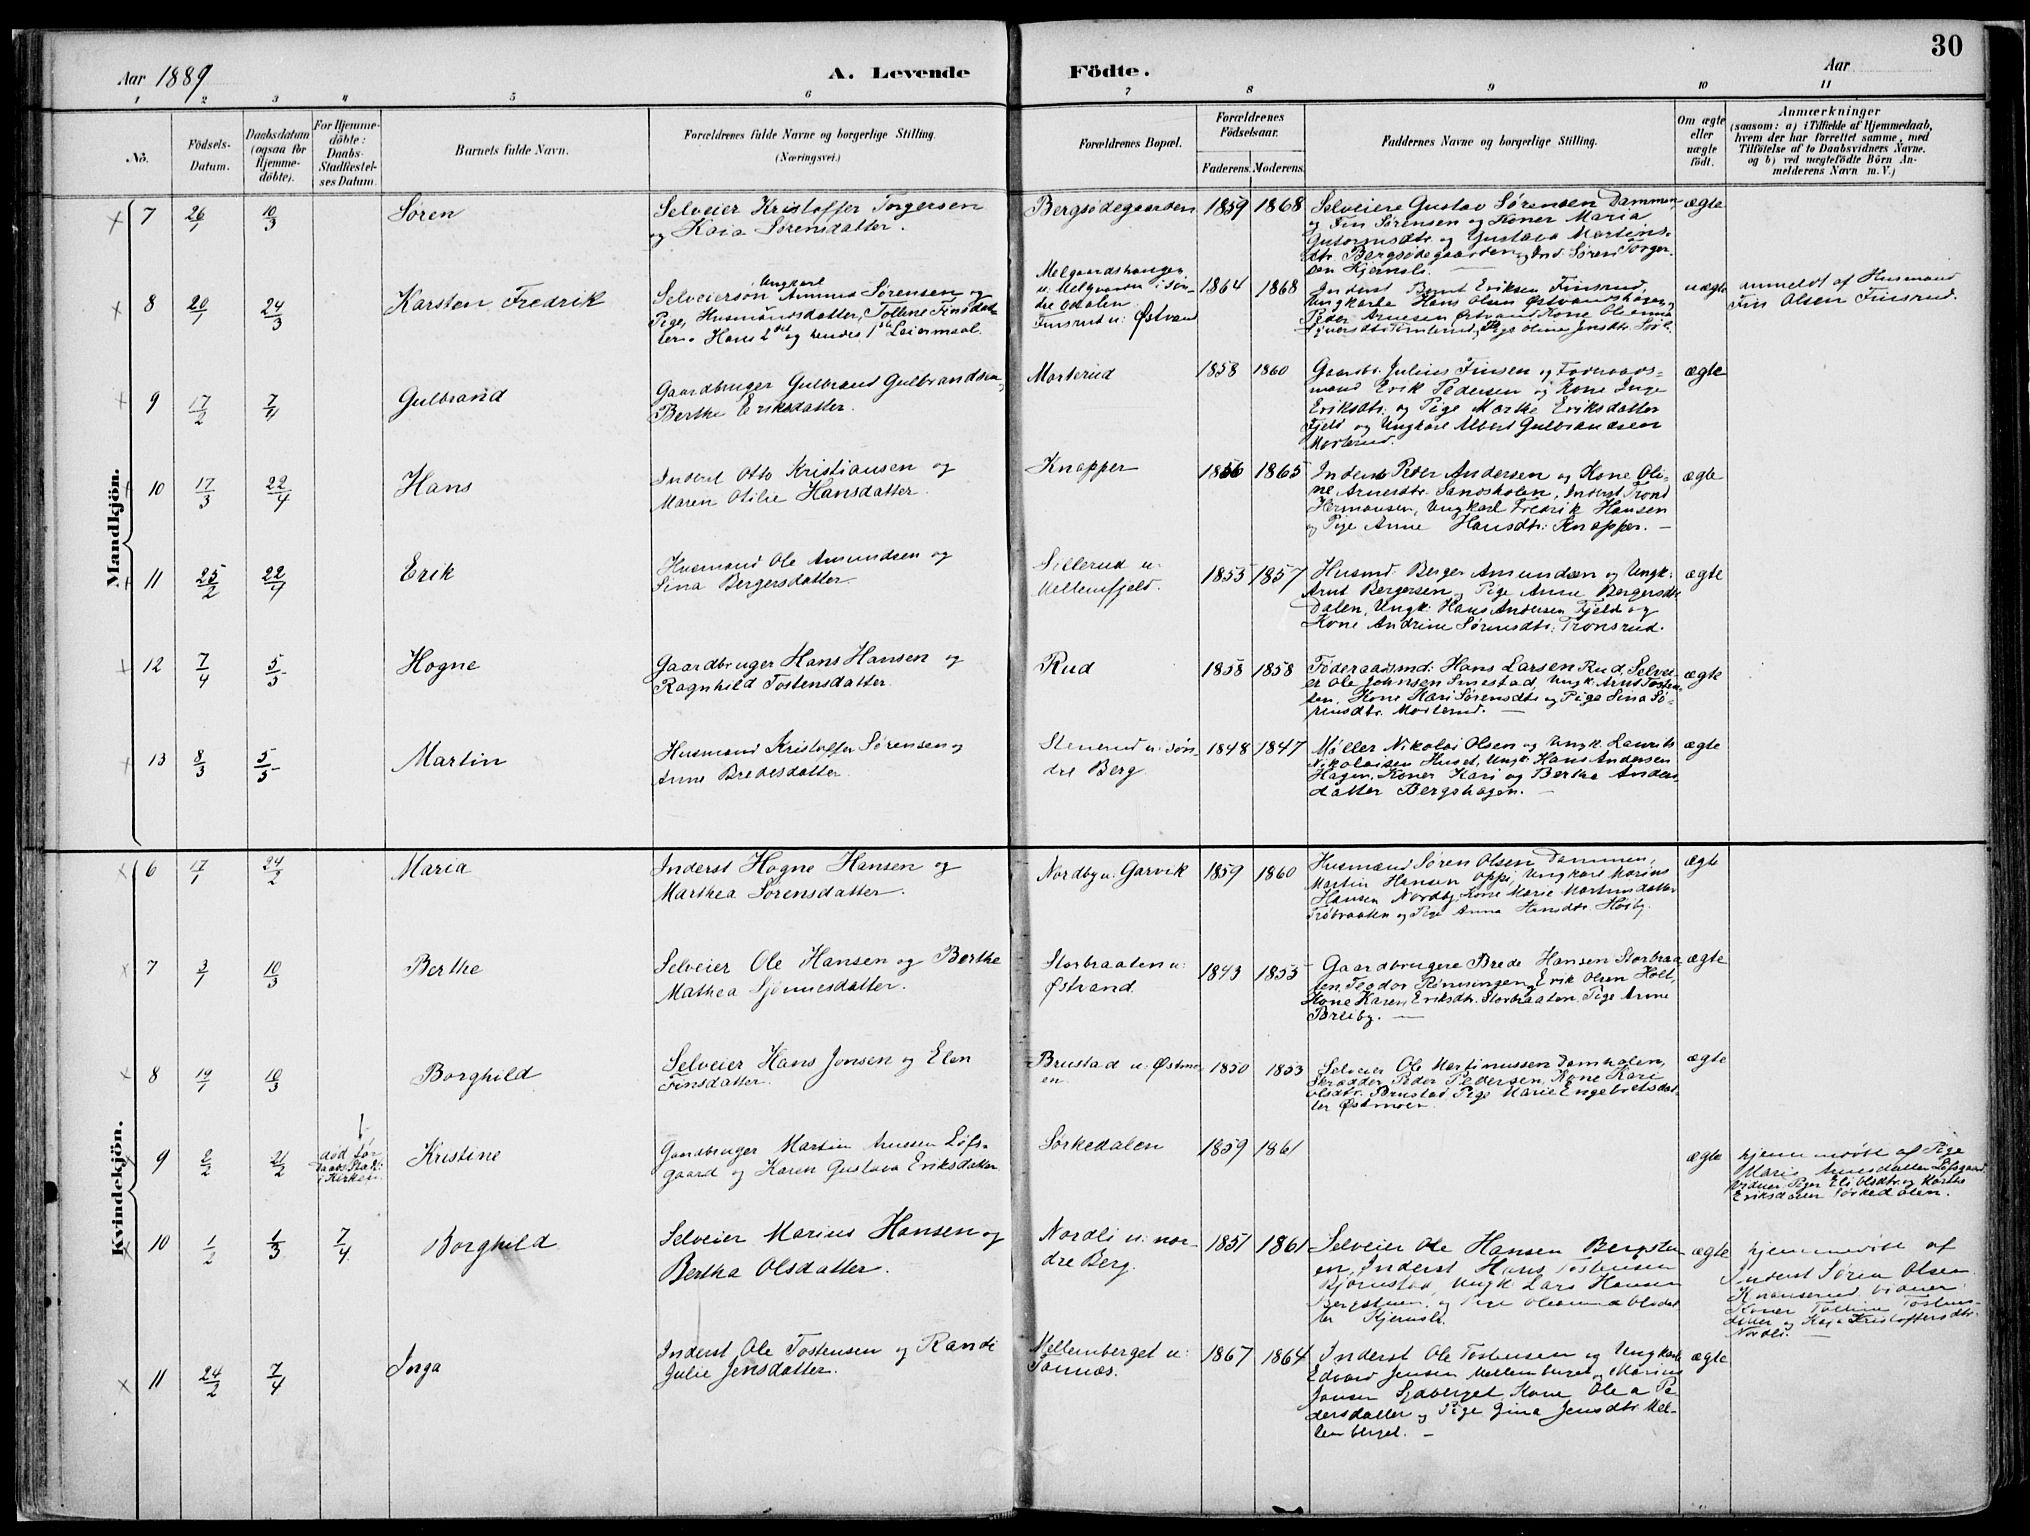 30
Aar 1889
A. Levende
Födte.
Aar
1 2 3 4 5 6 7 8 9 10 11
No.
Födsels-Datum.
Daabsdatum (ogsaa for Hjemmedöbte).
For Hjemmedöbte: Daabs-Stadfæstelses Datum.
Barnets fulde Navn.
Forældrenes fulde Navne og borgerlige Stilling.
(Næringsvei.)
Forældrenes Bopæl.
Forældrenes Födselsaar.
Faderens. Moderens.
Faddernes Navne og borgerlige Stilling.
Om ægte eller uægte født.
Anmærkninger
(saasom: a) i Tilfælde af Hjemmedaab,
hvem der har forrettet samme, med
Tilföielse af to Daabsvidners Navne.
og b) ved uægtefödte Börn Anmelderens Navn m. V.)
Mandkjön.
7 26/1 10/3 Søren
Selveier Kristoffer Torgersen
og Kaia Sørensdatter.
Bergsødegaarden 1859 1868
Selveiere Gustav Sørensen Dammen,
og Fin Sørensen og Koner Maria
Gutormsdtr. og Gustava Martins-
dtr. Bergsødegaarden og Ind. Søren Torger-
sen Kjernsli.
ægte
8 20/1 24/3 Karsten Fredrik
Ungkarl
Selveiersøn Ammund Sørensen og
Pige, Husmandsdatter, Tolline Finsdat-
ter. Hans 2det og hendes 1ste Leiermaal.
Melgaardshaugen
u. Melgaarden i Søn-
dre Odalen
Finsrud u: Østvand
1864 1868
Inderst Bernt Eriksen Finsrud,
Ungkarle Hans Olsen Østvandshagen,
Peder Arnesen Østvand, Kone Oleanna
uægte
anmeldt af Husmand
Fin Olsen Finsrud.
9 17/2 7/4 Gulbrand
Gaardbruger Gulbrand Gulbrandsen,
Berthe Eriksdatter.
Morterud 1858 1860
Gaardbr. Julius Finsen og Føderaads-
mand Erik Pedersen og Kone Inge
Eriksdtr. og Pige Marthe Eriksdatter
Fjeld og Ungkarl Albert Gulbrandsen
Morterud.
ægte
10 17/3 22/4 Hans
Inderst Otto Kristiansen og
Maren Otilie Hansdatter.
Knapper 1856 1865
Inderst Peder Andersen og Kone Oli-
ne Arnesdtr. Sandsholen, Inderst Trond
Hermansen, Ungkarl Fredrik Hansen
og Pige Anne Hansdtr. Knapper. —
ægte
11 25/2 22/4 Erik
Husmand Ole Amundsen og
Sina Bergersdatter
Sillerud u:
Mellemfjeld.
1855 1857
Husmd. Berger Amundsen og Ungk:
Arnt Bergersen, Pige Anne Bergersdtr.
Dalen, Ungk: Hans Andersen Fjeld og
Kone Andrine Sørensdtr: Tronsrud.
ægte
12 7/4 5/5 Hogne
Gaardbruger Hans Hansen og
Ragnhild Tostensdatter.
Rud 1858 1858
Føderaadsmd: Hans Larsen Rud, Selvei-
er Ole Johnsen Smestad, Ungk. Arnt Tosten-
sen, Kone Kari Sørensdtr. og Pige Sina Sø-
rensdtr. Morterud. —
ægte
13 8/3 5/5 Martin
Husmand Kristoffer Sørensen og
Anne Bredesdatter.
Stenerud u: Søn-
dre Berg
1848 1847
Møller Nikolai Olsen og Ungk. Laurits
Nikolaisen Huset, Ungk: Hans Andersen
Hagen, Koner Kari og Berthe Anders
datter Bergshagen. —
ægte
Kvindekjön.
6 17/1 24/2 Maria
Inderst Hogne Hansen og
Marthea Sørensdatter.
Nordby u. Garvik 1859 1860
Husmænd Søren Olsen Dammen,
Martin Hansen Oppi, Ungkarl Marius
Hansen Nordby, Kone Marie Martinsdatter
og Pige Anna Hansdtr. Høiby.
ægte
7 3/1 10/3 Berthe
Selveier Ole Hansen og Berthe
Mathea Sjønnesdatter.
Storbraaten u:
Østvand.
1843 1855
Gaardbrugere Brede Hansen Storbraa-
ten, Teodor Rønningen, Erik Olsen Holt,
Kone Karen Eriksdtr. Storbraaten, Pige Anne
Breiby. —
ægte
8 19/1 10/3 Borghild
Selveier Hans Jonsen og Elen
Finsdatter.
Brustad u: Østmo-
en.
1850 1853
Selveier Ole Martinussen Damholen,
Skrædder Peder Pedersen, Kone Kari
Olsdtr. Brustad, Pige Marie Engebretsdat-
ter Østmoen.
ægte
9 2/2 21/2
død før
Daabs Stadf.
i Kirken.
Kristine
Gaardbruger Martin Arnesen Løfs-
gaard og Karen Gustava Eriksdatter
Sørkedalen 1859 1861
ægte
hjemmedøbt af Pige
Maris Arnesdatter Løfsgaard.
Vidner Piger Eli Olsdtr. og Marthe
Eriksdatter Sørkedalen.
10 1/2 1/3 7/4 Borghild
Selveier Marius Hansen og
Bertha Olsdatter.
Nordli u: nor-
dre Berg.
1857 1861
Selveier Ole Hansen Bergstu-
en, Inderst Hans Tostensen
Bjørnstad, Ungk: Lars Hansen
Bergstuen, og Pige Oleanna Olsdat-
ter Kjernsli.
ægte
hjemmedøbt af
Inderst Søren Olsen
Vidner
Koner Tolline Tostens-
datter og Kaja Kristoffersdtr.
Nordli. —
11 24/2 7/4 Inga
Inderst Ole Tostensen og Randi
Julie Jensdatter.
Mellemberget u:
Sonnæs.
1867 1864
Inderst Ole Tostensen og Ungkarl
Edvard Jensen Mellemberget, Marius
Jansen Sjøberget, Kone Olea Pe-
dersdatter og Pige Gina Jensdtr. Mel-
lemberget. —
ægte